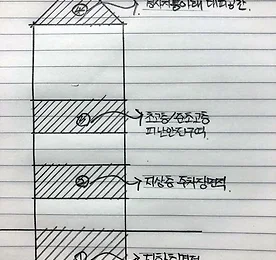 경사지붕아래 대피공간
④
초고층/준초고층
피난안전구역
③
지상층 주차장면적
②
지하층면적
①